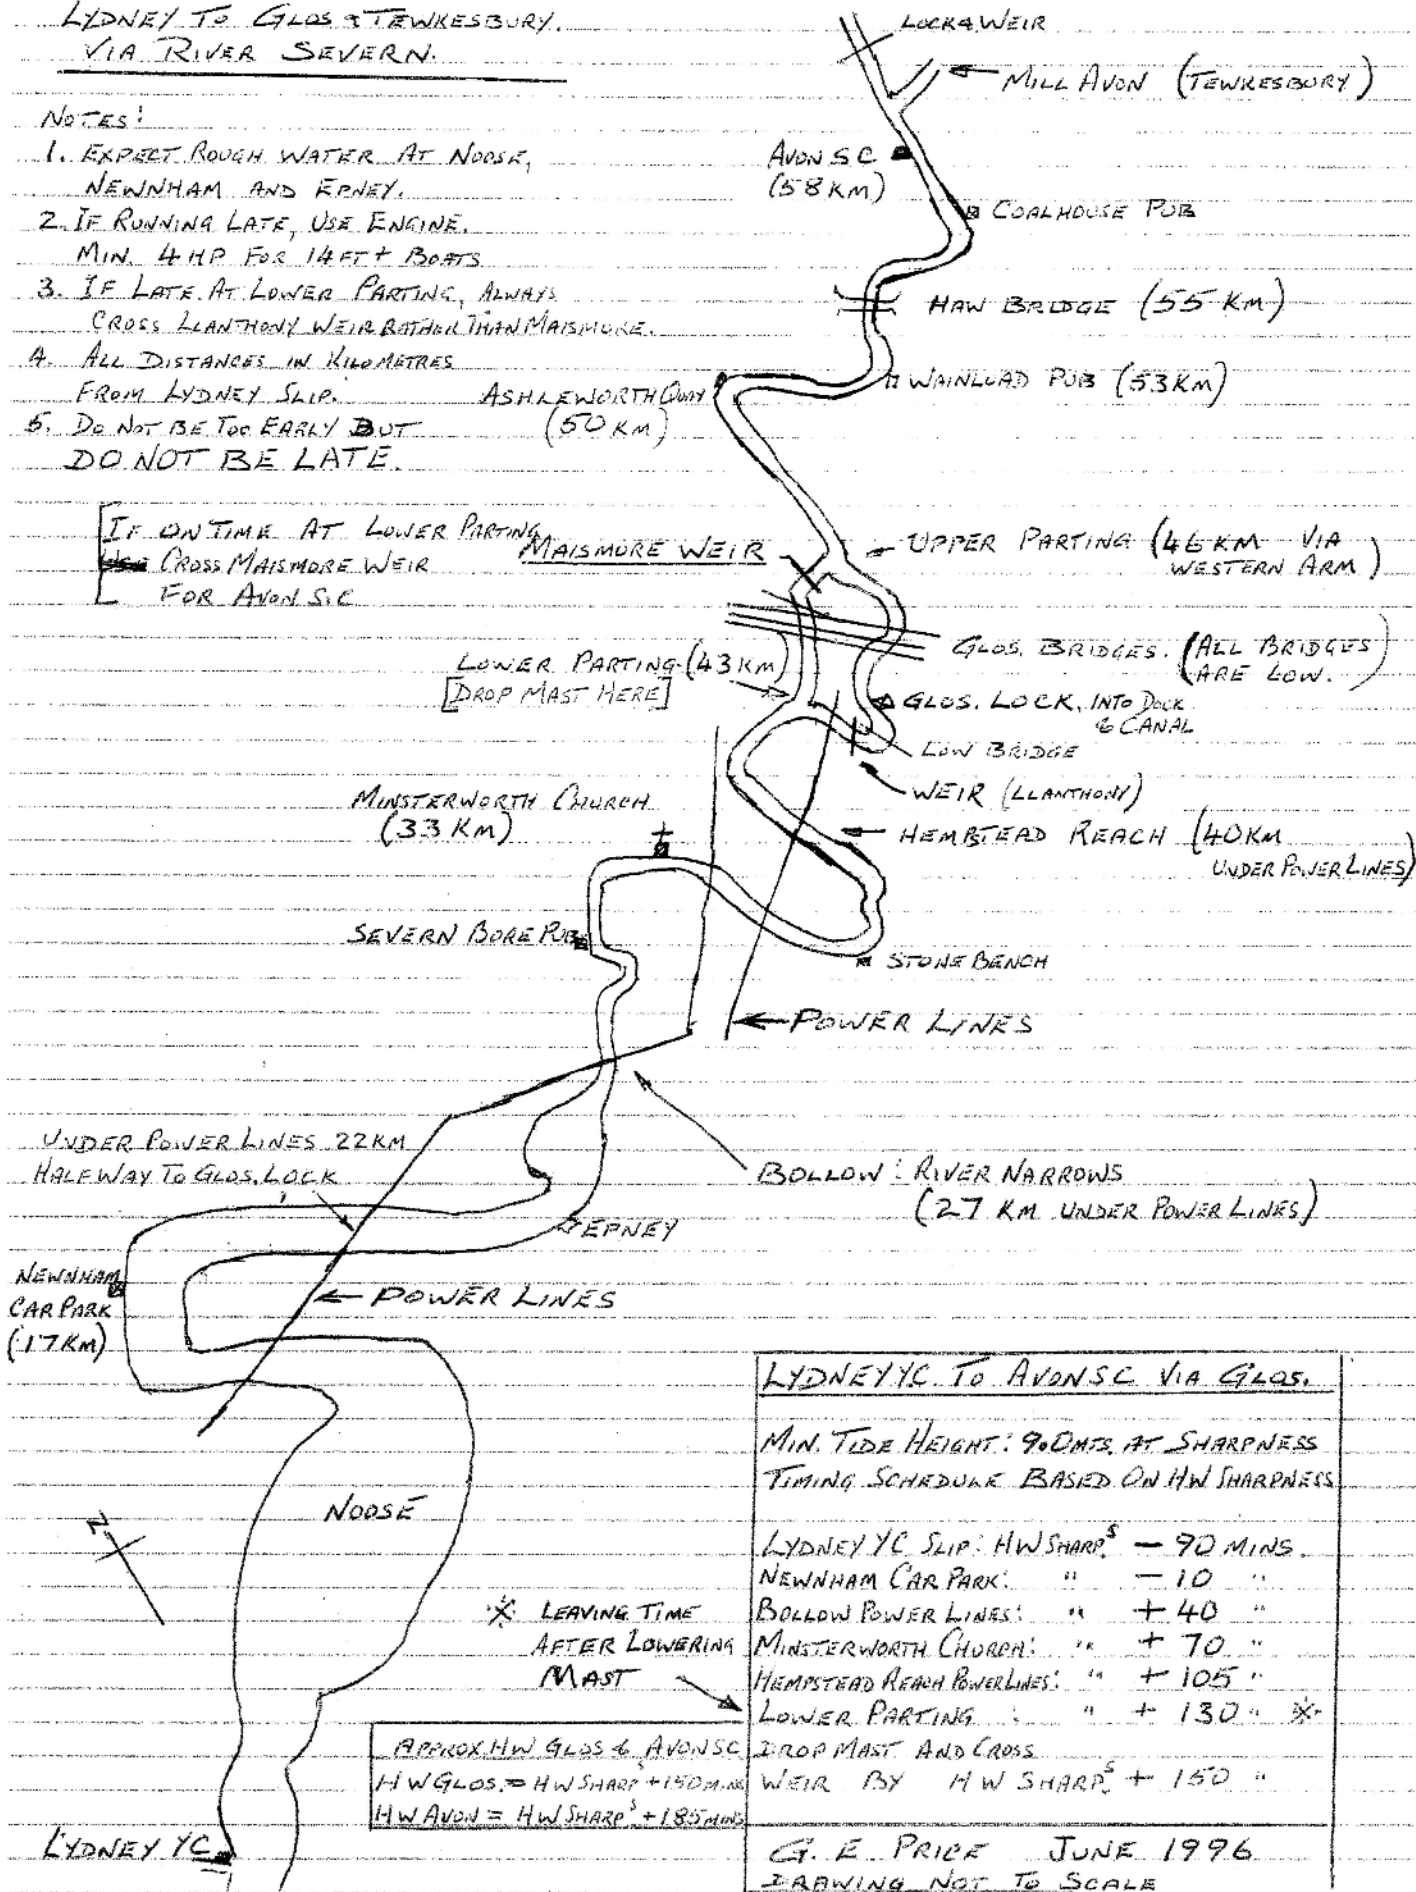 LYDNEY TO GLOS & TEWKESBURY.
VIA RIVER SEVERN.
NOTES:
1. EXPECT ROUGH WATER AT NOOSE,
NEWNHAM AND EPNEY.
2. IF RUNNING LATE, USE ENGINE.
MIN. 4 HP FOR 14FT+ BOATS
3. IF LATE AT LOWER PARTING, ALWAYS
CROSS LLANTHONY WEIR RATHER THAN MAISMORE.
4. ALL DISTANCES IN KILOMETRES
FROM LYDNEY SLIP.
5. DO NOT BE TOO EARLY BUT
DO NOT BE LATE.
IF ON TIME AT LOWER PARTING
CROSS MAISMORE WEIR
FOR AVON S.C
LOCK & WEIR
MILL AVON (TEWKESBURY)
AVON SC
(58 KM)
COALHOUSE PUB
HAW BRIDGE (55 KM)
WAINLOAD PUB (53KM)
ASHLEWORTH QUAY
(50 KM)
MAISMORE WEIR
UPPER PARTING (46 KM VIA
WESTERN ARM)
GLOS. BRIDGES. (ALL BRIDGES
ARE LOW.)
LOWER PARTING (43 KM)
[DROP MAST HERE]
GLOS. LOCK, INTO DOCK
& CANAL
LOW BRIDGE
WEIR (LLANTHONY)
MINSTERWORTH CHURCH
(33 KM)
HEMPSTEAD REACH (40KM
UNDER POWER LINES)
SEVERN BORE PUB
STONE BENCH
POWER LINES
UNDER POWER LINES 22KM
HALFWAY TO GLOS. LOCK
BOLLOW: RIVER NARROWS
(27 KM UNDER POWER LINES)
EPNEY
NEWNHAM
CAR PARK
(17KM)
POWER LINES
NOOSE
N
LYDNEY YC. TO AVON SC VIA GLOS.
MIN. TIDE HEIGHT: 9.0MTS. AT SHARPNESS
TIMING SCHEDULE BASED ON HW SHARPNESS
LYDNEY YC SLIP: HW SHARP.S - 90 MINS.
NEWNHAM CAR PARK: " - 10 "
BOLLOW POWER LINES: " + 40 "
MINSTERWORTH CHURCH: " + 70 "
HEMPSTEAD REACH POWER LINES: " + 105 "
LOWER PARTING : " + 130 " ※
DROP MAST AND CROSS
WEIR BY HW SHARP.S + 150 "
※ LEAVING TIME
AFTER LOWERING
MAST
APPROX. HW GLOS & AVON SC
HW GLOS. = HW SHARPS + 150 MINS
HW AVON = HW SHARPS + 185 MINS
LYDNEY YC
G. E. PRICE JUNE 1996
DRAWING NOT TO SCALE